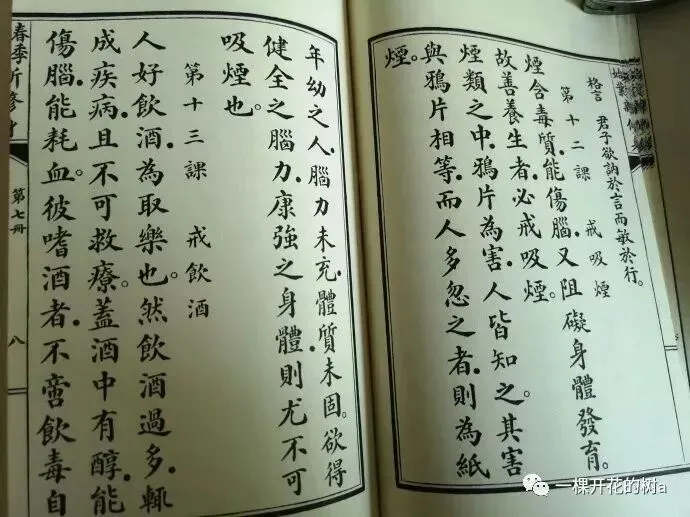 格言 君子欲訥於言而敏於行。
第十二課 戒吸煙
煙含毒質。能傷腦。又阻礙身體發育。
故善養生者。必戒吸煙。
煙類之中。鴉片為害。人皆知之。其害
與鴉片相等。而人多忽之者。則為紙
煙。
年幼之人。腦力未充。體質未固。欲得
健全之腦力。康強之身體。則尤不可
吸煙也。
第十三課 戒飲酒
人好飲酒。為取樂也。然飲酒過多。輒
成疾病。且不可救療。蓋酒中有醇。能
傷腦。能耗血。彼嗜酒者。不啻飲毒自
春季 修身
第七冊
八
一棵开花的树a